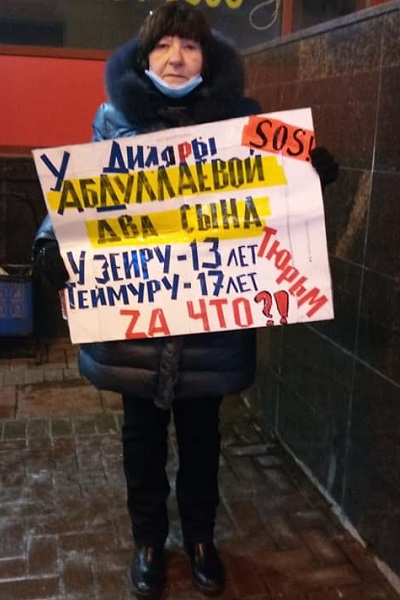 SOS!
У ДИЛЯРЫ
АБДУЛЛАЕВОЙ
ДВА СЫНА
УЗЕИРУ-13 ЛЕТ
ТЕЙМУРУ-17 ЛЕТ
ТЮРЬМ
ZА ЧТО?!